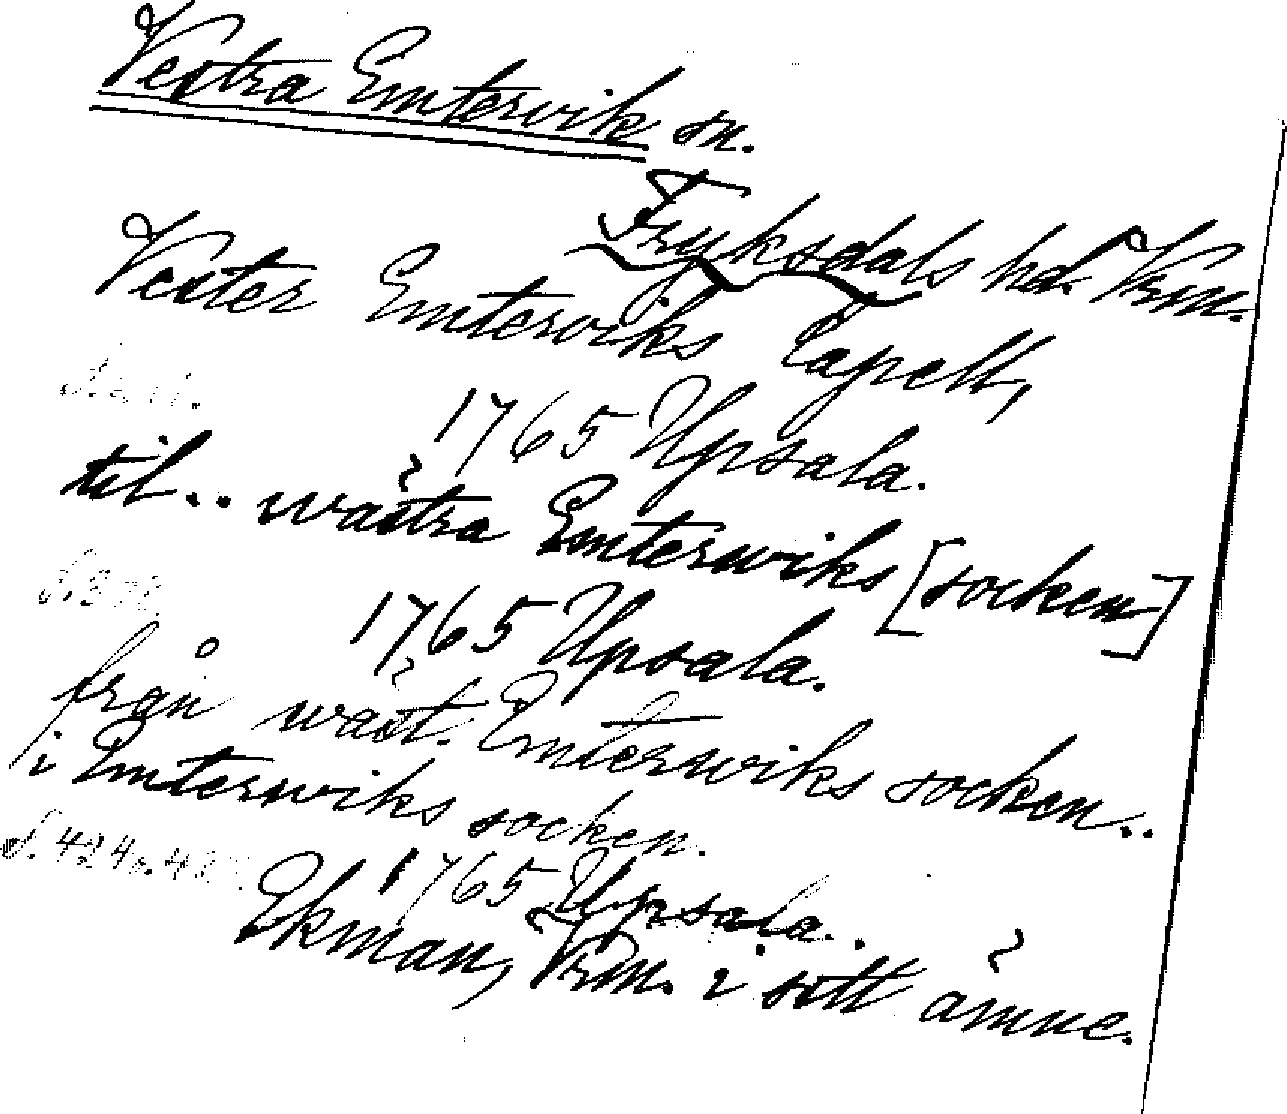 Vestra Emtervik sn.
Fryksdals hd. Vrm.
Vester Emterviks Capell,
1765 Upsala.
til.. wästra Emterwiks [socken]
1765 Upsala.
från wäst. Emterwiks socken..
i Emterwiks socken.
S. 424 o. 42
1765 Upsala..
Ekman, Vrm. i sitt ämne.